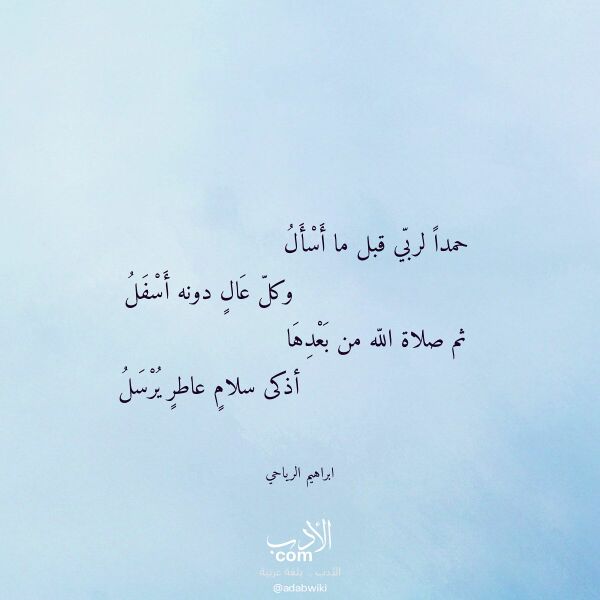 حمداً لربّي قبل ما أَسْأَلُ
وكلّ عَالٍ دونه أَسْفَلُ
ثم صلاة اللّه من بَعْدِهَا
أذكى سلامٍ عاطرٍ يُرْسَلُ
ابراهيم الرياحي
الأدب
com
الأدب .. بلغة عربية
@adabwiki